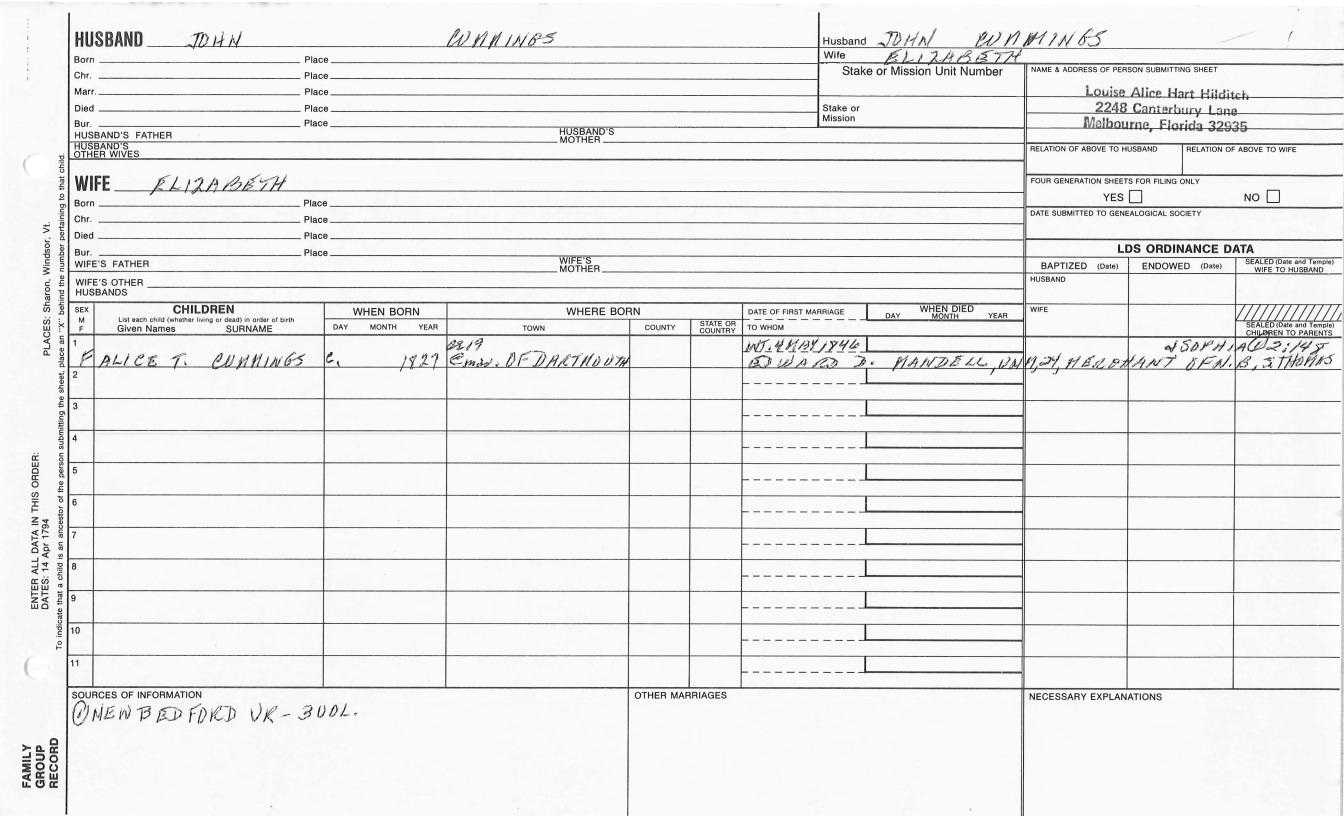 HUSBAND JOHN CUMMINGS
Born Place
Chr. Place
Marr. Place
Died Place
Bur. Place
HUSBAND'S FATHER HUSBAND'S MOTHER
HUSBAND'S OTHER WIVES
Husband JOHN CUMMINGS
Wife ELIZABETH
Stake or Mission Unit Number
Stake or Mission
NAME & ADDRESS OF PERSON SUBMITTING SHEET
Louise Alice Hart Hilditch
2248 Canterbury Lane
Melbourne, Florida 32935
RELATION OF ABOVE TO HUSBAND RELATION OF ABOVE TO WIFE
FOUR GENERATION SHEETS FOR FILING ONLY
YES NO
DATE SUBMITTED TO GENEALOGICAL SOCIETY
WIFE ELIZABETH
Born Place
Chr. Place
Died Place
Bur. Place
WIFE'S FATHER WIFE'S MOTHER
WIFE'S OTHER HUSBANDS
LDS ORDINANCE DATA
BAPTIZED (Date) ENDOWED (Date) SEALED (Date and Temple) WIFE TO HUSBAND
HUSBAND
WIFE
SEALED (Date and Temple) CHILDREN TO PARENTS
SEX M F
CHILDREN
List each child (whether living or dead) in order of birth
Given Names SURNAME
WHEN BORN
DAY MONTH YEAR
WHERE BORN
TOWN COUNTY STATE OR COUNTRY
DATE OF FIRST MARRIAGE
TO WHOM
WHEN DIED
DAY MONTH YEAR
1 19 INT. 4 MAY 1846 & SOPHIA ① 2:148
F ALICE T. CUMMINGS C. 1827 OF DARTMOUTH EDWARD D. MANDELL, 24, MERCHANT OF N.B, S. THOMAS
2
3
4
5
6
7
8
9
10
11
SOURCES OF INFORMATION
① NEW BEDFORD VR - 3 VOL.
OTHER MARRIAGES
NECESSARY EXPLANATIONS
FAMILY GROUP RECORD
ENTER ALL DATA IN THIS ORDER:
DATES: 14 Apr 1794 PLACES: Sharon, Windsor, Vt.
To indicate that a child is an ancestor of the person submitting the sheet, place an "X" behind the number pertaining to that child.